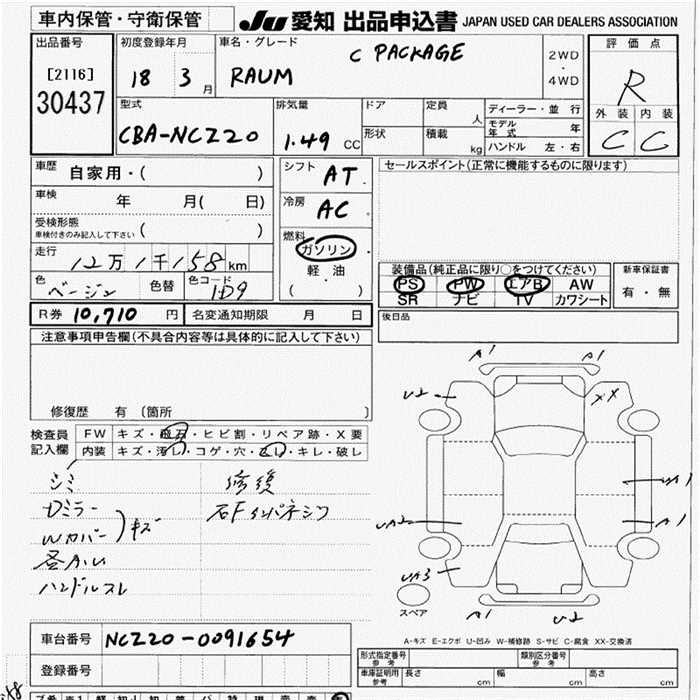 車内保管・守衛保管
JU 愛知 出品申込書 JAPAN USED CAR DEALERS ASSOCIATION
出品番号
[2116]
30437
初度登録年月
18 3 月
車名・グレード
C PACKAGE
RAUM
2WD
・
4WD
評価点
R
外装 内装
C C
型式
CBA-NCZ20
排気量
1.49 CC
ドア
形状
定員 人
積載 kg
ディーラー・並行
モデル年式 年
ハンドル 左・右
車歴 自家用・( )
車検 年 月( 日)
受検形態
車検付きのみ記入して下さい ( )
走行 12万1千158km
色 ベージュ 色替 色コード 1D9
シフト AT
冷房 AC
燃料
ガソリン
軽・油
( )
セールスポイント(正常に機能するものに限ります)
装備品(純正品に限り○をつけてください)
PS PW エアB AW
SR ナビ TV カワシート
新車保証書
有・無
R券 10,710 円 名変通知期限 月 日
後日品
注意事項申告欄(不具合内容等は具体的に記入して下さい)
修復歴 有 (箇所 )
検査員
記入欄
FW キズ・飛石・ヒビ割・リペア跡・X要
内装 キズ・汚れ・コゲ・穴・スレ・キレ・破レ
シミ
Dミラー
Wカバー キズ
ハンドルスレ
修復
右Fインパネシワ
A1 A1
U2 XX
UA1
UA2 A1
UA3
A1 U2
スペア
A-キズ E-エクボ U-凹み W-補修跡 S-サビ C-腐食 XX-交換済
車台番号 NCZ20-0091654
登録番号
型式指定番号
参考
類別区分番号
参考
車庫証明用
参考
長さ cm 幅 cm 高さ cm